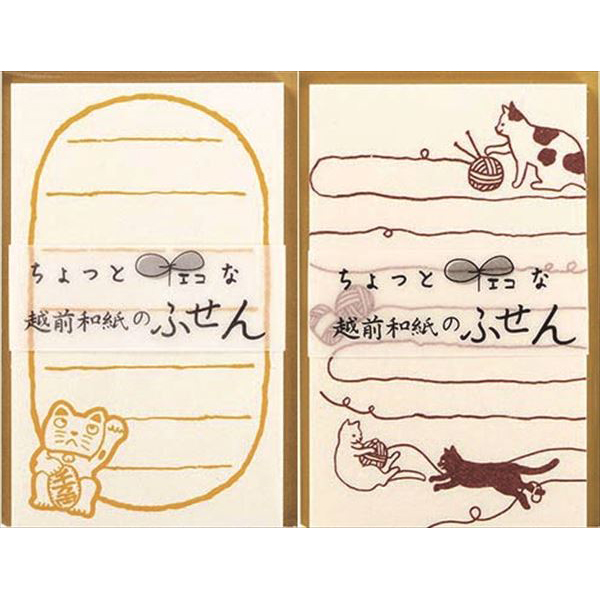 ちょっとエコな
越前和紙のふせん
ちょっとエコな
越前和紙のふせん